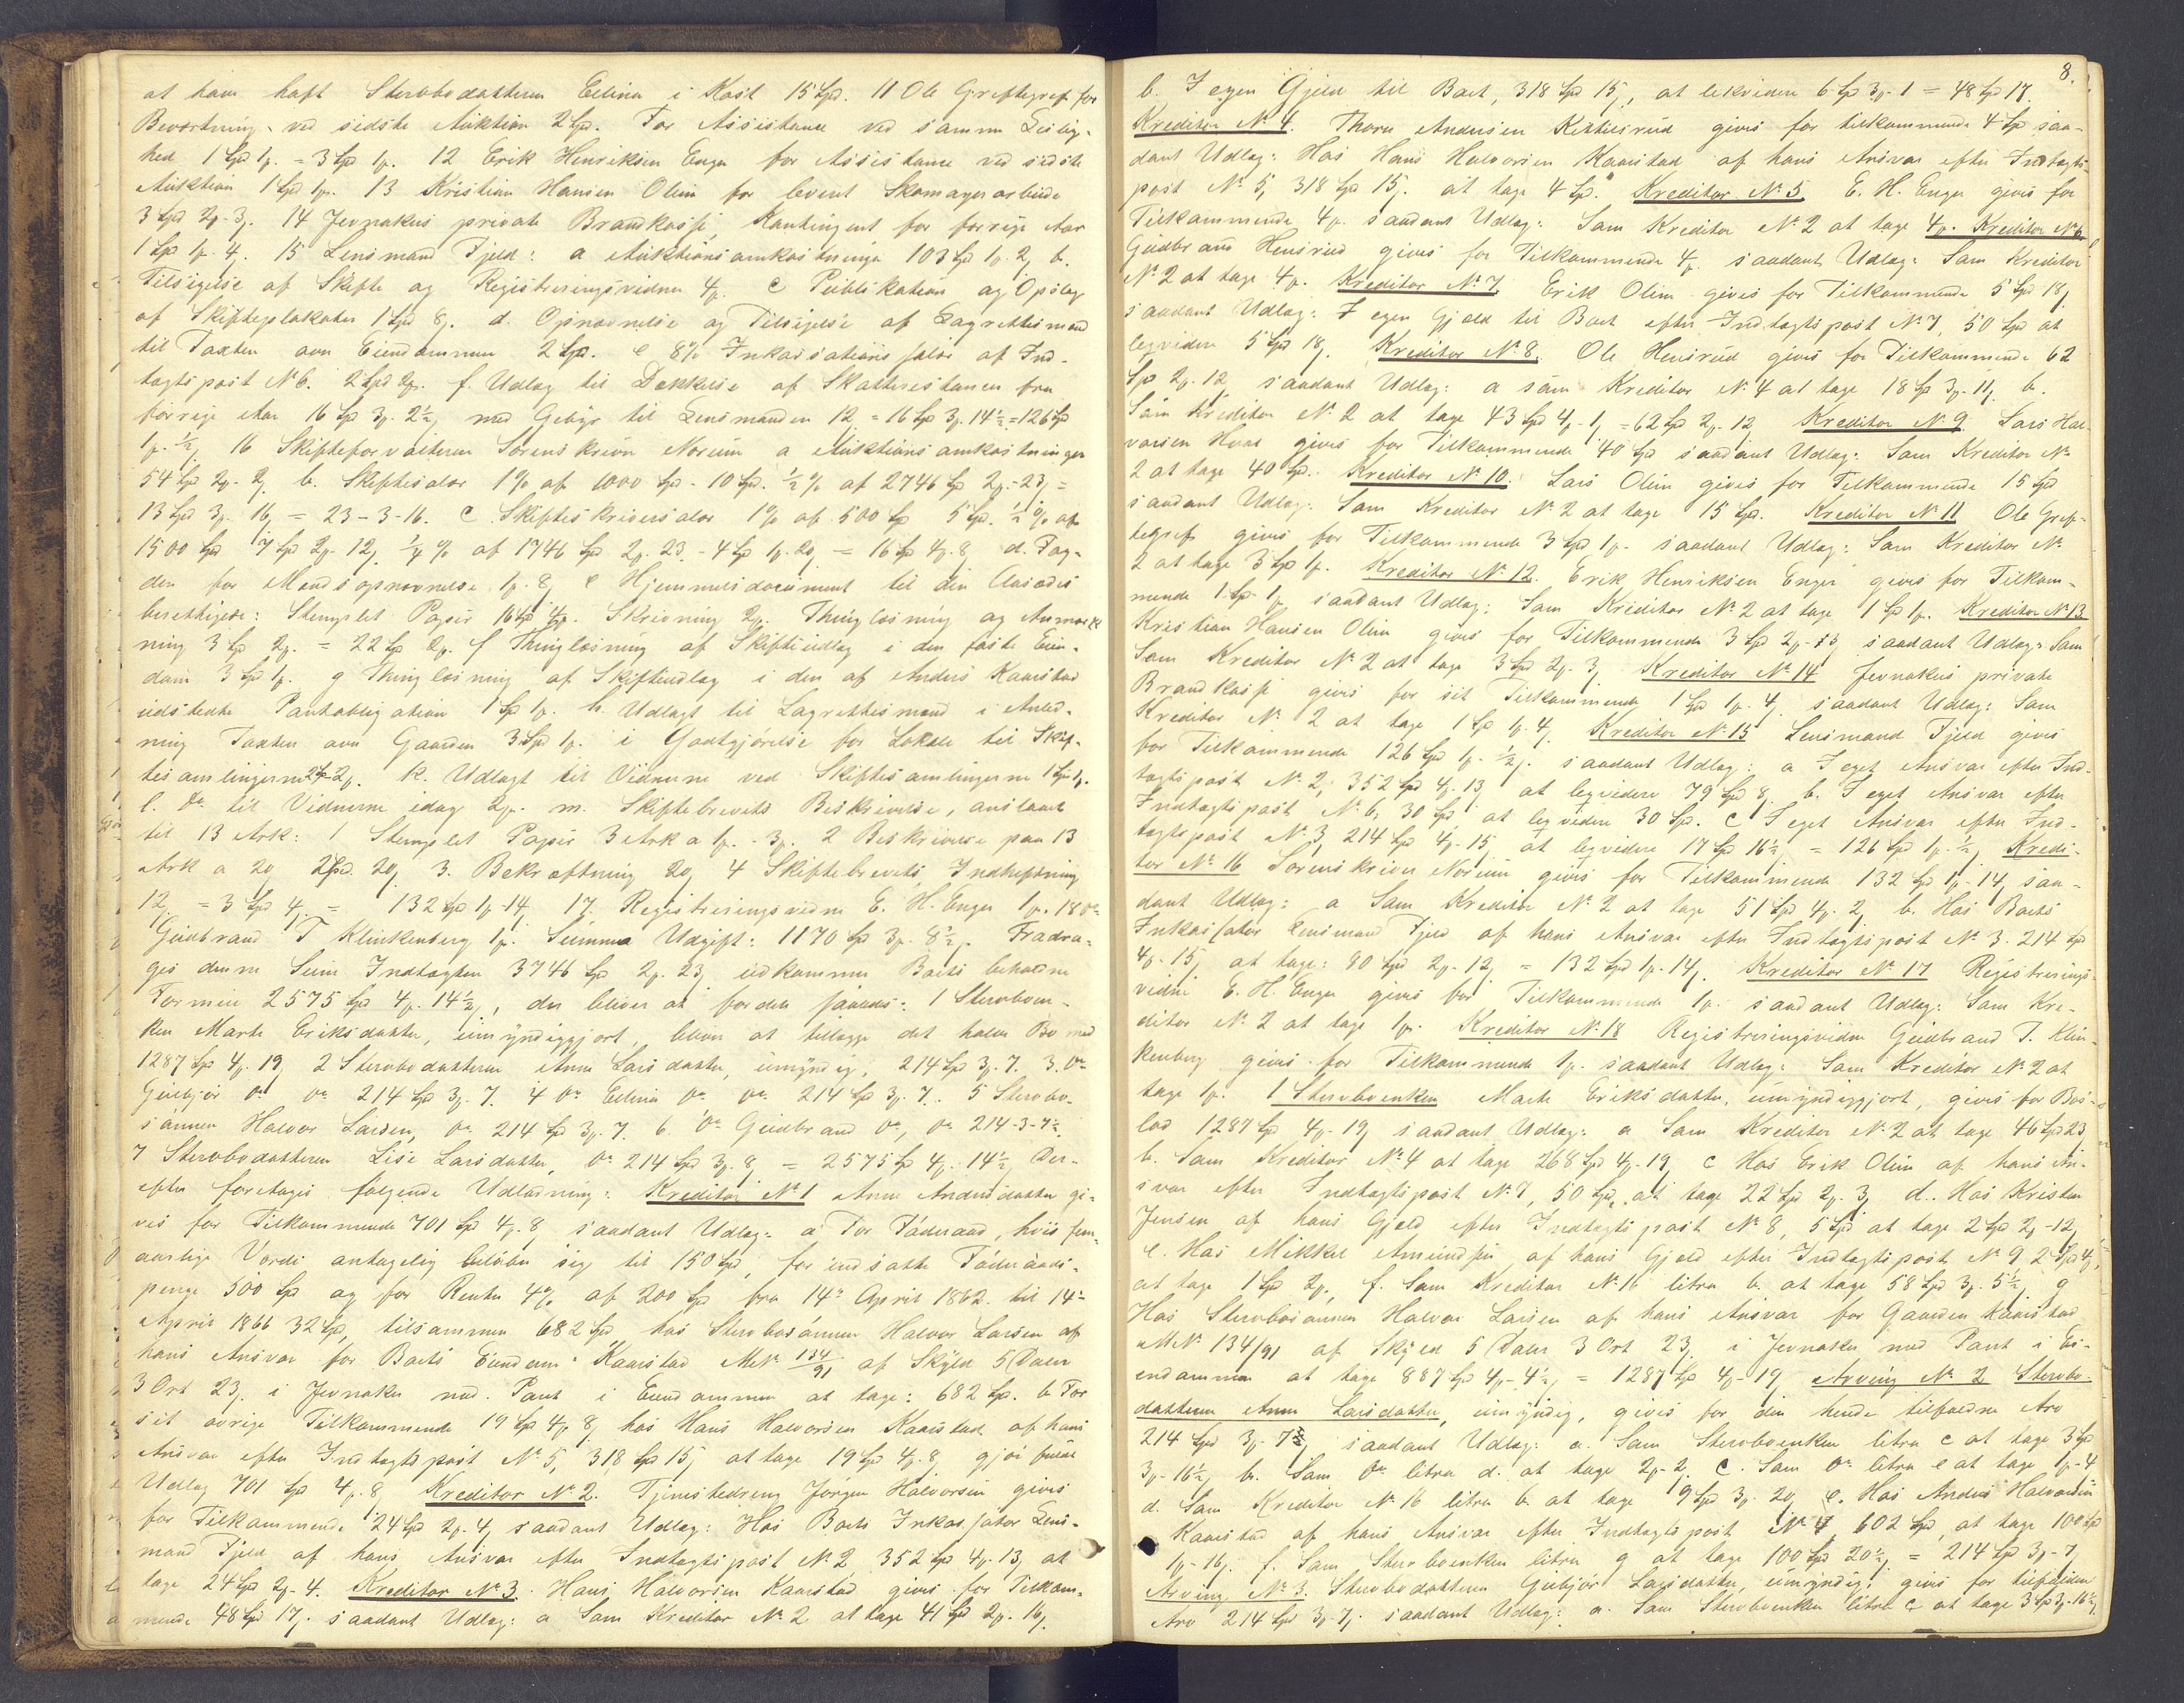 at have haft Stervbodatteren Eelina i Kost 15 Spd. 11 Ole Greftegref for
Bevertning ved sidste Auktion 2 Spd. For Assistance ved samme Leilig-
hed 1 Spd 1 = 3 Spd 1. 12 Erik Henriksen Enger for Assistance ved sidste
Auktion 1 Spd 1. 13 Kristian Hansen Olim for levert Skomagerarbeide
3 Spd 2-3. 14 Jevnakers private Brandkasse, Kontingent for forrige Aar
1 Spd 1-4. 15 Lensmand Fjeld: a Auktionsomkostninger 103 Spd 1-2, b.
Tilsigelse af Skifte og Registreringsvidner 4. c Publikation og Opslag
af Skifteplakater 1 Spd 8. d. Opnævnelse og Tilsigelse af Lagrettesmænd
til Taxten over Eiendommen 2 Spd. e 8% Inkassationssalær af Ind-
tægtspost N 6. 2 Spd 2. f. Udlæg til Dækkelse af Skatterestancen fra
forrige Aar 16 Spd 3-2½, med Gebyr til Lensmanden 12 = 16 Spd 3-14½ = 126 Spd
1-½, 16 Skifteforvalteren Sorenskriver Norum a Auktionsomkostninger
54 Spd 2-2, b. Skiftesalær 1% af 1000 Spd - 10 Spd. ½% af 2746 Spd 2-23 =
13 Spd 3-16, = 23-3-16. c. Skifteskriversalær 1% af 500 Spd 5 Spd. ½% af
1500 Spd 7 Spd 2-12, ¼% af 1746 Spd 2-23 - 4 Spd 1-20, = 16 Spd 4-8, d. Fog-
den for Mændsopnævnelse 1-8, e Hjemmelsdocument til den Aasædes
berettigede: Stemplet Papir 16 Spd 4. Skrivning 2. Thinglæsning og Anmærk
ning 3 Spd 2. = 22 Spd 2. f Thinglæsning af Skifteudlæg i den faste Eien-
dom 3 Spd 1. g Thinglæsning af Skifteudlæg i den af Anders Kaarstad
udstedte Pantobligation 1 Spd 1. h. Udlagt til Lagrettesmænd i Anled-
ning Taxten over Gaarden 3 Spd 1. i Godtgjørelse for Lokale til Skif-
tesamlingerne 2 Spd 2. k. Udlagt til Vidnerne ved Skiftesamlingerne 1 Spd 1.
l. do til Vidnerne idag 2. m. Skiftebrevets Beskrivelse, anslaaet
til 13 Ark: 1 Stemplet Papir 3 Ark a 1 - 3. 2 Beskrivelse paa 13
Ark a 20, 2 Spd. 20, 3. Bekræftning 20, 4 Skiftebrevets Indheftning
12, = 3 Spd 4. = 132 Spd 1-14, 17. Registreringsvidne E. H. Enger 1. 18 do
Gudbrand T Klinkenberg 1. Summa Udgift: 1170 Spd 3-8½. Fradra-
ges denne Sum Indtægten 3746 Spd 2-23, udkommer Boets beholdne
Formue 2575 Spd 4-14½, der bliver at fordele saaledes: 1 Stervboen-
ken Marte Eriksdatter, umyndiggjort, bliver at tillægge det halve Bo med
1287 Spd 4-19, 2 Stervbodatteren Anne Larsdatter, umyndig, 214 Spd 3-7. 3. do
Gubjør do do 214 Spd 3-7. 4 do Eelina do do 214 Spd 3-7. 5 Stervbo-
sønnen Halvor Larsen, do 214 Spd 3-7. 6 do Gudbrand do, do 214-3-7½.
7 Stervbodatteren Lise Larsdatter, do 214 Spd 3-8, = 2575 Spd 4-14½, Der-
efter foretoges følgende Udlodning: Kreditor No 1 Anne Andersdatter gi-
ves for Tilkommende 701 Spd 4-8, saadant Udlæg: a For Føderaad, hvis fem-
aarlige Værdi antagelig beløber sig til 150 Spd, for indsatte Føderaads-
penge 500 Spd og for Renter 4% af 200 Spd fra 14de April 1862 til 14de
April 1866 32 Spd, tilsammen 682 Spd hos Stervbosønnen Halvor Larsen af
hans Ansvar for Boets Eiendom Kaarstad MNo 134/91 af Skyld 5 Daler
3 Ort 23, i Jevnaker med Pant i Eiendommen at tage: 682 Spd. b For
sit øvrige Tilkommende 19 Spd 4-8, hos Hans Halvorsen Kaarstad af hans
Ansvar efter Indtægtspost No 5, 318 Spd 15, at tage 19 Spd 4-8, gjør fulde
Udlæg 701 Spd 4-8 Kreditor No 2. Tjenestedreng Jørgen Halvorsen gives
for Tilkommende 24 Spd 2-4, saadant Udlæg: Hos Boets Inkassator Lens-
mand Fjeld af hans Ansvar efter Indtægtspost No 2 352 Spd 4-13, at
tage 24 Spd 2-4. Kreditor No 3. Hans Halvorsen Kaarstad gives for Tilkom-
mende 48 Spd 17. saadant Udlæg: a Som Kreditor No 2 at tage 41 Spd 2-16,
8.
b. I egen Gjeld til Boet, 318 Spd 15, at likvidere 6 Spd 3-1 = 48 Spd 17.
Kreditor No 4. Thore Andersen Kittilsrud gives for tilkommende 4 Spd saa-
dant Udlæg: Hos Hans Halvorsen Kaarstad af hans Ansvar efter Indtægts-
post No 5, 318 Spd 15, at tage 4 Spd. Kreditor No 5 E. H. Enger gives for
Tilkommende 4. saadant Udlæg: Som Kreditor No 2 at tage 4. Kreditor No 6
Gudbrand Hensrud gives for Tilkommende 4. saadant Udlæg: Som Kreditor
No 2 at tage 4. Kreditor No 7 Erik Olim gives for Tilkommende 5 Spd 18,
saadant Udlæg: I egen Gjeld til Boet efter Indtægtspost No 7, 50 Spd at
leqvidere 5 Spd 18, Kreditor No 8. Ole Hensrud gives for Tilkommende 62
Spd 2-12, saadant Udlæg: a som Kreditor No 4 at tage 18 Spd 3-11, b.
Som Kreditor No 2 at tage 43 Spd 4-1, = 62 Spd 2-12 Kreditor No 9 Lars Hal-
vorsen Hval gives for Tilkommende 40 Spd saadant Udlæg: Som Kreditor No
2 at tage 40 Spd. Kreditor No 10. Lars Olim gives for Tilkommende 15 Spd
saadant Udlæg: Som Kreditor No 2 at tage 15 Spd. Kreditor No 11 Ole Gref-
tegref gives for Tilkommende 3 Spd 1. saadant Udlæg: Som Kreditor No
2 at tage 3 Spd 1. Kreditor No 12. Erik Henriksen Enger gives for Tilkom-
mende 1 Spd 1, saadant Udlæg: Som Kreditor No 2 at tage 1 Spd 1. Kreditor No 13
Kristian Hansen Olim gives for Tilkommende 3 Spd 2-3, saadant Udlæg: Som
Som Kreditor No 2 at tage 3 Spd 2-3, Kreditor No 14 Jevnakers private
Brandkasse gives for sit Tilkommende 1 Spd 1-4, saadant Udlæg: Som
Kreditor No 2 at tage 1 Spd 1-4, Kreditor No 15 Lensmand Fjeld gives
for Tilkommende 126 Spd 1-½. saadant Udlæg: a I eget Ansvar efter Ind-
tægtspost No 2, 352 Spd 4-13, at leqvidere 79 Spd 8, b. I eget Ansvar efter
Indtægtspost No 6, 30 Spd at leqvidere 30 Spd. c I eget Ansvar efter Ind-
tægtspost No 3, 214 Spd 4-15, at leqvidere 17 Spd 16½ = 126 Spd 1-½, Kredi-
tor No 16 Sorenskriver Norum gives for Tilkommende 132 Spd 1-14, saa-
dant Udlæg: a Som Kreditor No 2 at tage 51 Spd 4-2, b. Hos Boets
Inkassator Lensmand Fjeld af hans Ansvar efter Indtægtspost No 3. 214 Spd
4-15, at tage: 80 Spd 2-12, = 132 Spd 1-14, Kreditor No 17 Registrerings-
vidne E. H. Enger gives for Tilkommende 1. saadant Udlæg: Som Kre-
ditor No 2 at tage 1. Kreditor No 18 Registreringsvidne Gudbrand T. Klin-
kenberg gives for Tilkommende 1. saadant Udlæg: Som Kreditor No 2 at
tage 1. 1 Stervboenken Marte Eriksdatter, umyndiggjort, gives for Bos-
lod 1287 Spd 4-19, saadant Udlæg: a Som Kreditor No 2 at tage 46 Spd 23,
b. Som Kreditor No 4 at tage 268 Spd 4-19, c Hos Erik Olim af hans An-
svar efter Indtægtspost No 7, 50 Spd, at tage 22 Spd 2-3, d. Hos Kristen
Jensen af hans Gjeld efter Indtægtspost No 8, 5 Spd at tage 2 Spd 2-12,
e. Hos Mikkel Amundsen af hans Gjeld efter Indtægtspost No 9 2 Spd 4,
at tage 1 Spd 2, f. Som Kreditor No 16 litra b. at tage 58 Spd 3-5½, g
Hos Stervbosønnen Halvor Larsen af hans Ansvar for Gaarden Kaarstad
MNo 134/91 af Skyld 5 Daler 3 Ort 23, i Jevnaker med Pant i Ei-
endommen at tage 887 Spd 4-4½, = 1287 Spd 4-19, Arving No 2 Stervbo-
datteren Anne Larsdatter, umyndig, gives for den hende tilfaldne Arv
214 Spd 3-7, saadant Udlæg: a. Som Stervboenken litra c at tage 3 Spd
3-16½, b. Som do litra d. at tage 2-2, c. Som do litra e at tage 1-4
d. Som Kreditor No 16 litra b at tage 9 Spd 3-20, e. Hos Anders Halvorsen
Kaarstad af hans Ansvar efter Indtægtspost No 4, 602 Spd, at tage 100 Spd
1-16, f. Som Stervboenken litra g at tage 100 Spd 20½, = 214 Spd 3-7,
Arving No 3. Stervbodatteren Gubjør Larsdatter, umyndig, gives for tilfalden
Arv 214 Spd 3-7, saadant Udlæg: a. Som Stervboenken litra c at tage 3 Spd 3-16½,